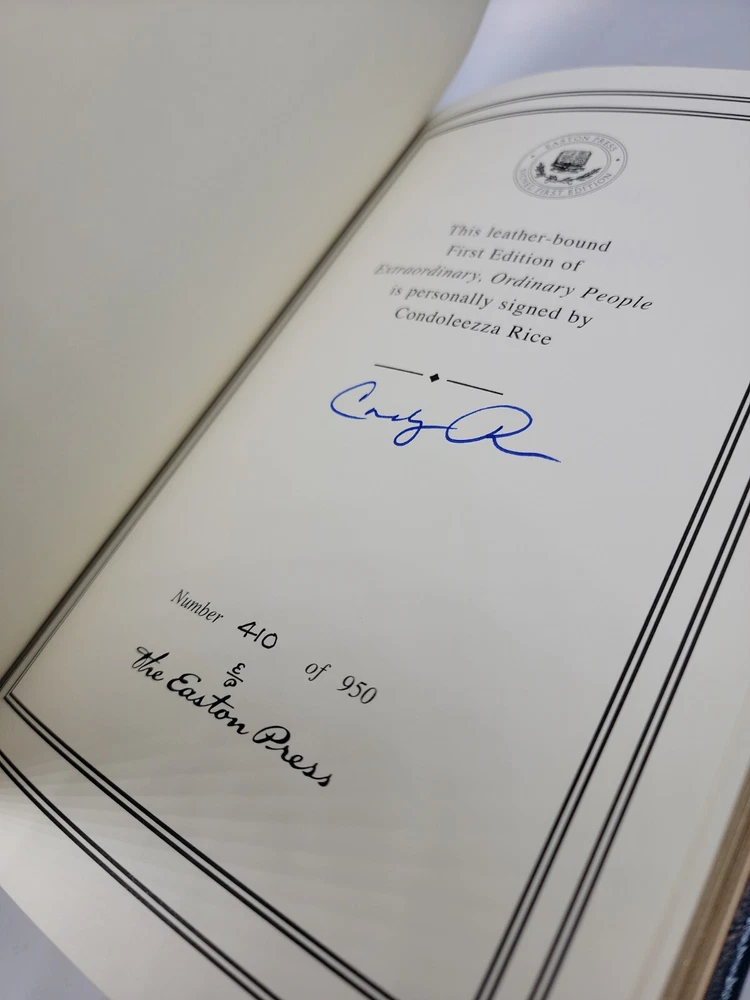 EASTON PRESS
SIGNED FIRST EDITION
This leather-bound
First Edition of
Extraordinary, Ordinary People
is personally signed by
Condoleezza Rice
Condy R
Number 410 of 950
The Easton Press